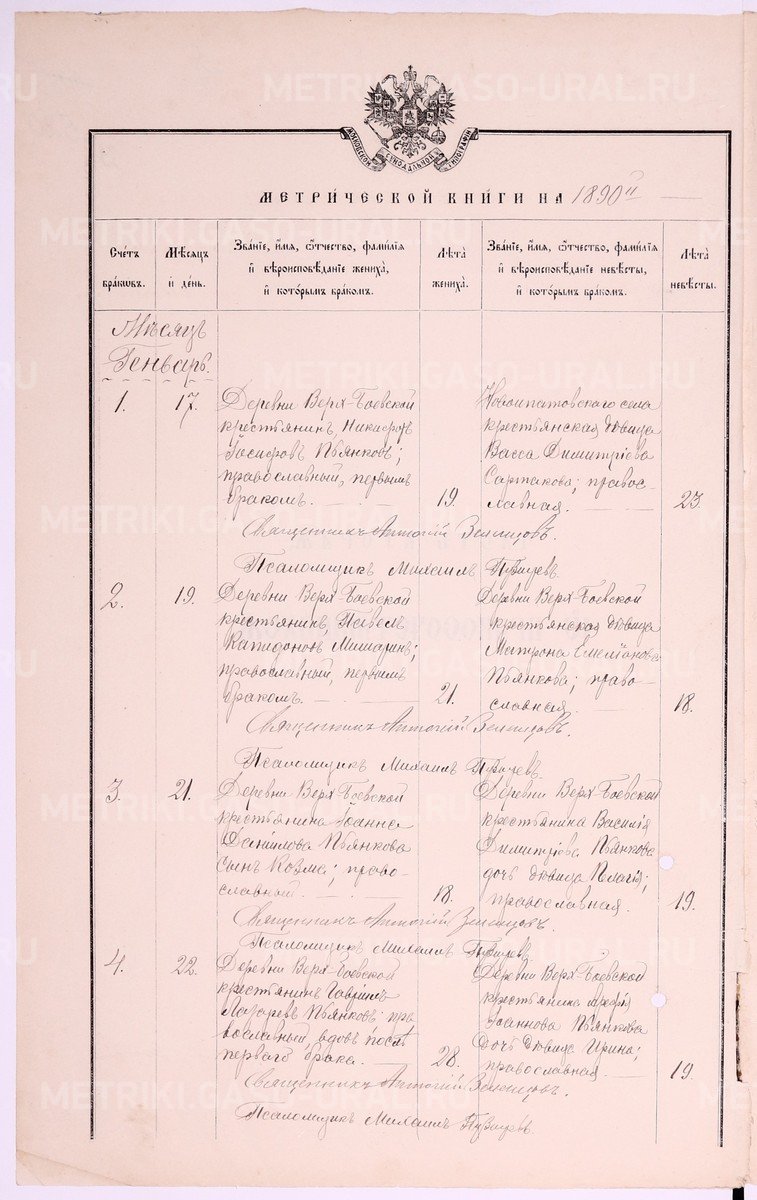 МОСКОВСКОЙ СѴНОДАЛЬНОЙ ТИПОГРАФІИ
МЕТРИ́ЧЕСКОЙ КНИ́ГИ НА 1890й
Сче́тъ бра́ковъ.
Мѣ́сяцъ и҆ де́нь.
Зва́нїе, и҆́мя, ѻ҆́тчество, фами́лїя и҆ вѣроисповѣ́данїе жениха̀, и҆ кото́рымъ бра́комъ.
Лѣта̀ жениха̀.
Зва́нїе, и҆́мя, ѻ҆́тчество, фами́лїя и҆ вѣроисповѣ́данїе невѣ́сты, и҆ кото́рымъ бра́комъ.
Лѣта̀ невѣ́сты.
Мѣсяцъ
Генварь.
1.
17.
Деревни Верх-Боевской
крестьянинъ Никифоръ
Іосифовъ Пьянковъ;
православный, первымъ
бракомъ.
19.
Новоипатовскаго села
крестьянская дѣвица
Васса Димитріева
Сартакова; право-
славная.
23.
Священникъ Антоній
Псаломщикъ Михаилъ
2.
19.
Деревни Верх-Боевской
крестьянинъ Павелъ
Капидоновъ Мишаринъ;
православный, первымъ
бракомъ.
21.
Деревни Верх-Боевской
крестьянская дѣвица
Матрона Емеліанова
Пьянкова; право-
славная.
18.
Священникъ Антоній
Псаломщикъ Михаилъ
3.
21.
Деревни Верх-Боевской
крестьянина Іоанна
Даниилова Пьянкова
сынъ Козма; право-
славный.
18.
Деревни Верх-Боевской
крестьянина Василія
Димитріева Пьянкова
дочь дѣвица Пелагія;
православная.
19.
Священникъ Антоній
Псаломщикъ Михаилъ
4.
22.
Деревни Верх-Боевской
крестьянинъ Гавріилъ
Лазаревъ Пьянковъ; пра-
вославный, вдовъ послѣ
перваго брака.
28.
Деревни Верх-Боевской
крестьянина
Іоаннова Пьянкова
дочь дѣвица Ирина;
православная.
19.
Священникъ Антоній
Псаломщикъ Михаилъ
METRIKI.GASO-URAL.RU